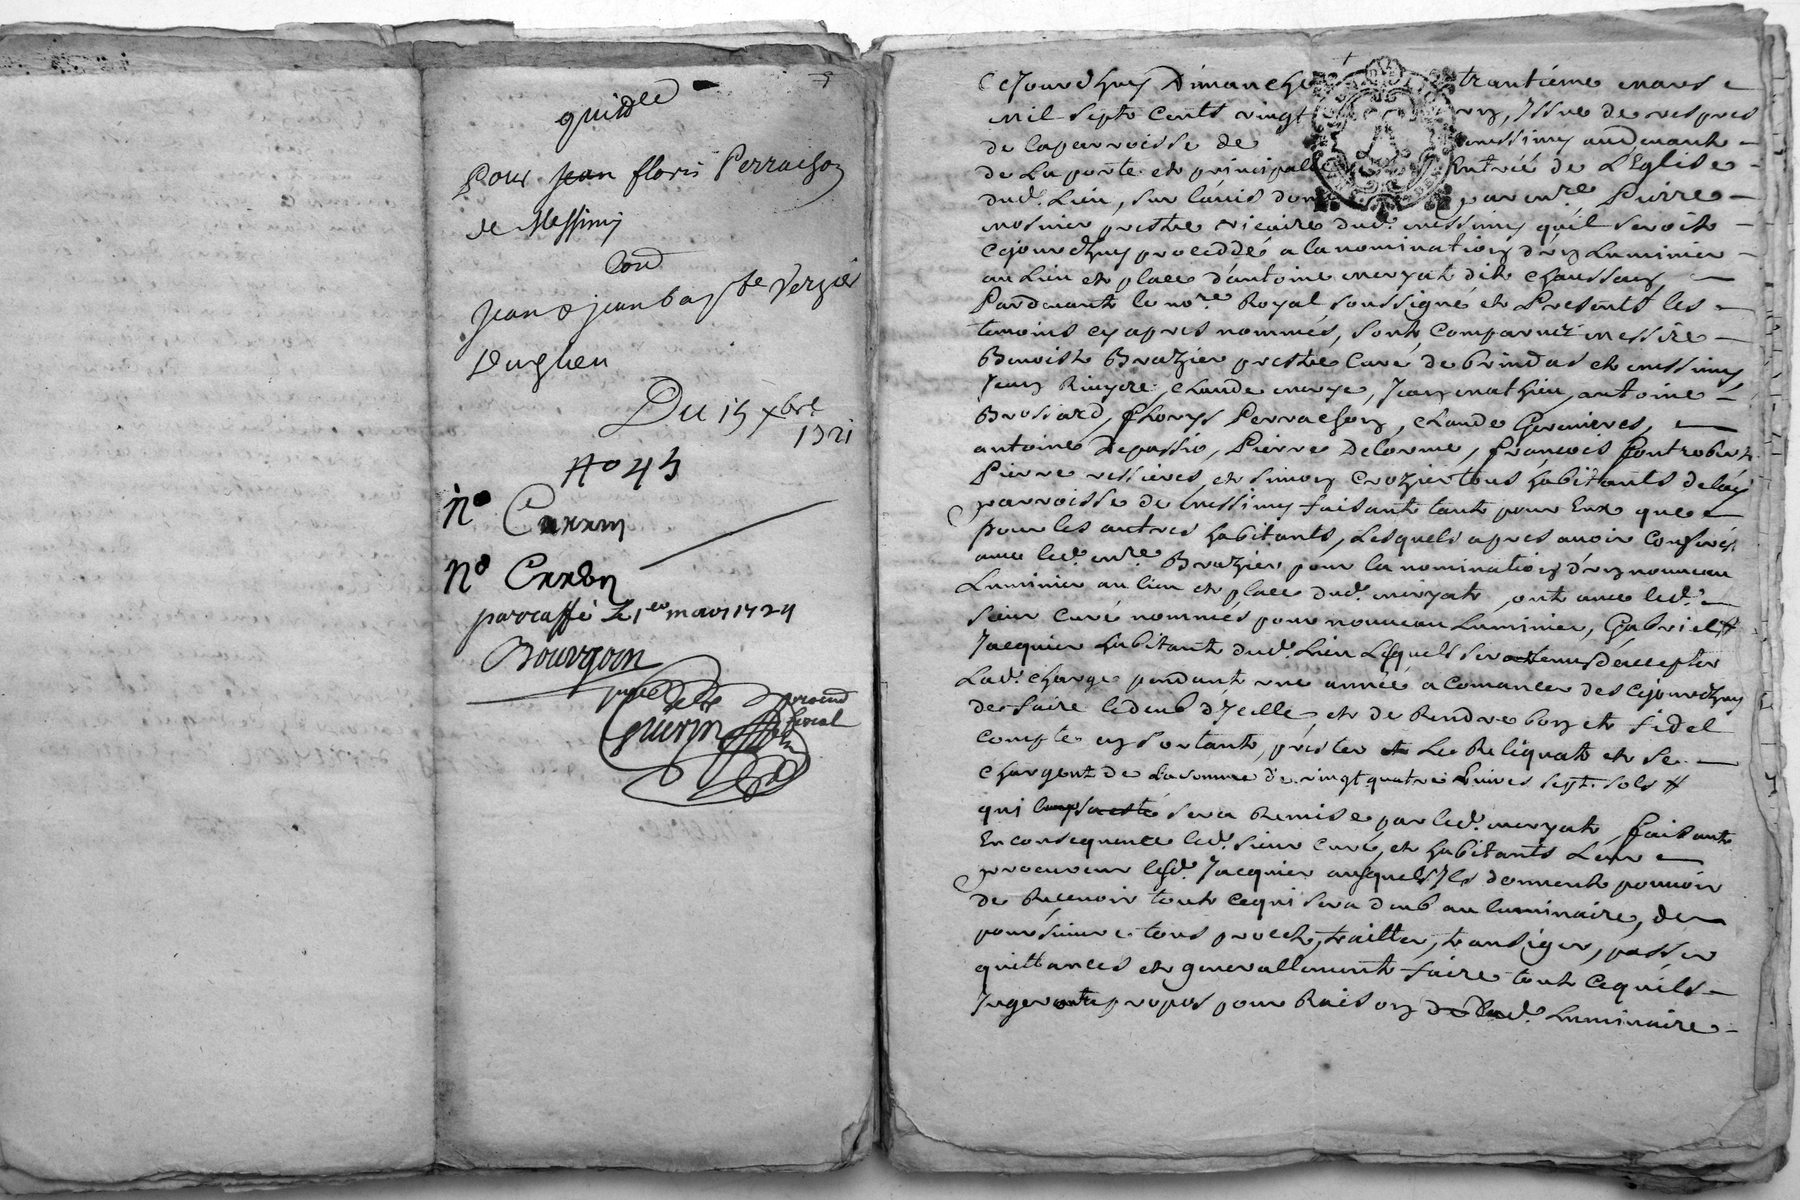 quittce
pour jean floris Perrachon
de Messimy
Cont
Jean & jean baptte Verzier
Dugheu
Du 15 xbre
1721
No 45
No Carrin
No Carron
parraffé Le 1er mars 1724
Bourgoin
juge
procureur
fiscal
Guerin
Cejourdhuy Dimanche trantième mars
mil septs cents vingt un, Issue de vespres
de la parroisse de messimy audevant
de La porte et principalle Entréé de L'Eglise
dud. Lieu, sur l'auis donné par mre Pierre
mosnier prestre vicaire dud. messimy quil seroit
Cejourdhuy proceddé a la nomination d'un Luminier
au Lieu et place d'antoine meryat dit chaussan,
Pardeuant le nore Royal soussigné et Presents les
temoins cy apres nommés, sont comparus messire
Benoist Brazier prestre Curé de brindas et messimy
Jean Riuyere, claude merge, Jean mathieu, antoine
Brossard, florys Perrachon, claude Gerenieres,
antoine Depassio, Pierre Delorme, françois fontrobert
Pierre ressieres, et simon Crozier tous habitants de lad
parroisse de messimy faisant tant pour Eux que
pour les autres habitants, Lesquels apres auoir conferés
auec led. mre Brazier pour la nomination d'un nouueau
Luminier au lieu et place dud. meryat, ont auec led.
sieur curé nommés pour nouueau Luminier, Gabriel
Jacquier habitant dud. Lieu Lesquels sera tenus d'accepter
Lad. charge pendant une année a comancer des cejourdhuy
de faire le deub d'Jcelle, et de Rendre bon et fidel
compte en sortant, prester et Le Reliquat et se
chargent de La somme de vingt quatre Liures sept sols
qui sera Remise par led. meryat, faisant
En consequence led. sieur curé, et habitants Leur
procureur lesd. Jacquier ausquels Jls donnent pouuoir
de Receuoir tout cequi sera deub au luminaire, de
poursuiure tous procets, traitter, transiger, passer
quittances et generallement faire tout cequ'ils
Jugeront apropos pour Raison dud. Luminaire